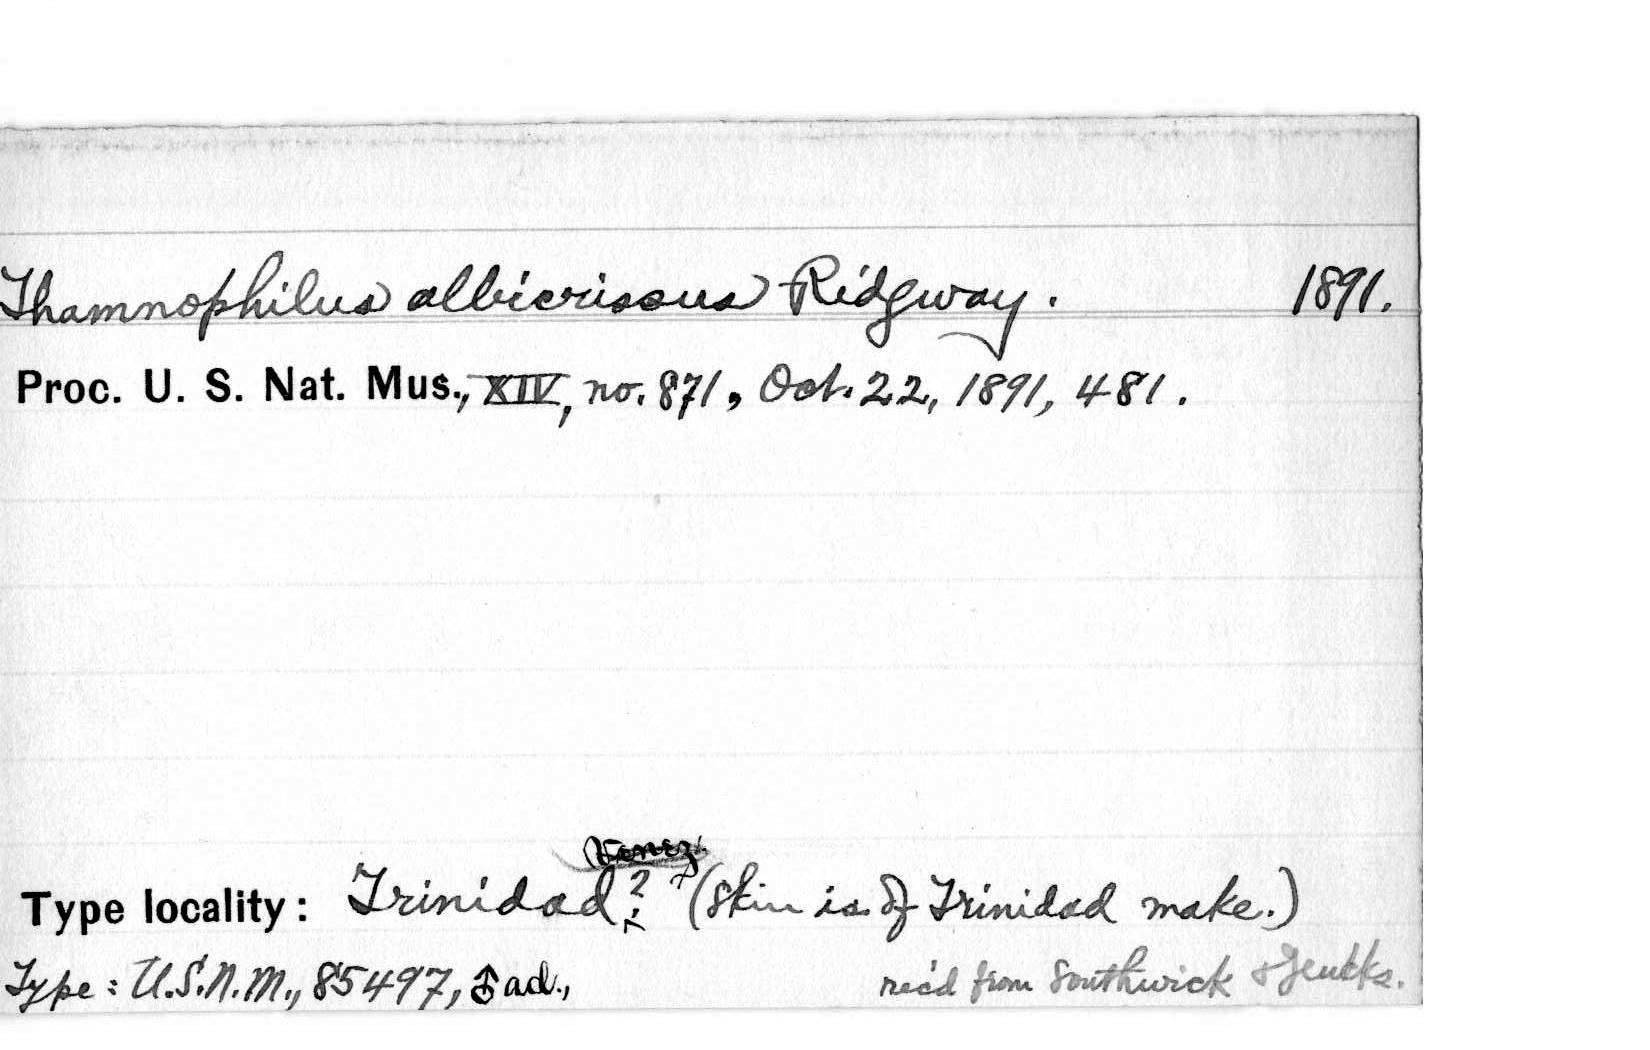 Thamnophilus albicrissus Ridgway. 1891.
Proc. U. S. Nat. Mus., XIV, no. 871, Oct. 22, 1891, 481.
Venez.
Type locality: Trinidad? (Skin is of Trinidad make.)
Type: U.S.N.M., 85497, ♂ ad., rec'd from Southwick & Jencks.